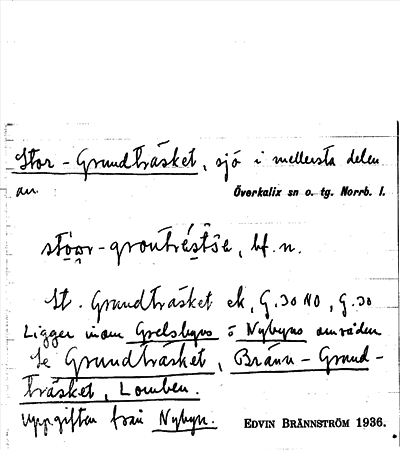 Stor-Grundträsket, sjö i mellersta delen
av Överkalix sn o. tg. Norrb. l.
bf. n.
St. Grundträsket ek, G. 30 NO, G. 30
Ligger inom Grelsbyns o Nybyns områden
Se Grundträsket, Bränn-Grund-
träsket, Lomben.
Uppgiften från Nybyn. EDVIN BRÄNNSTRÖM 1936.